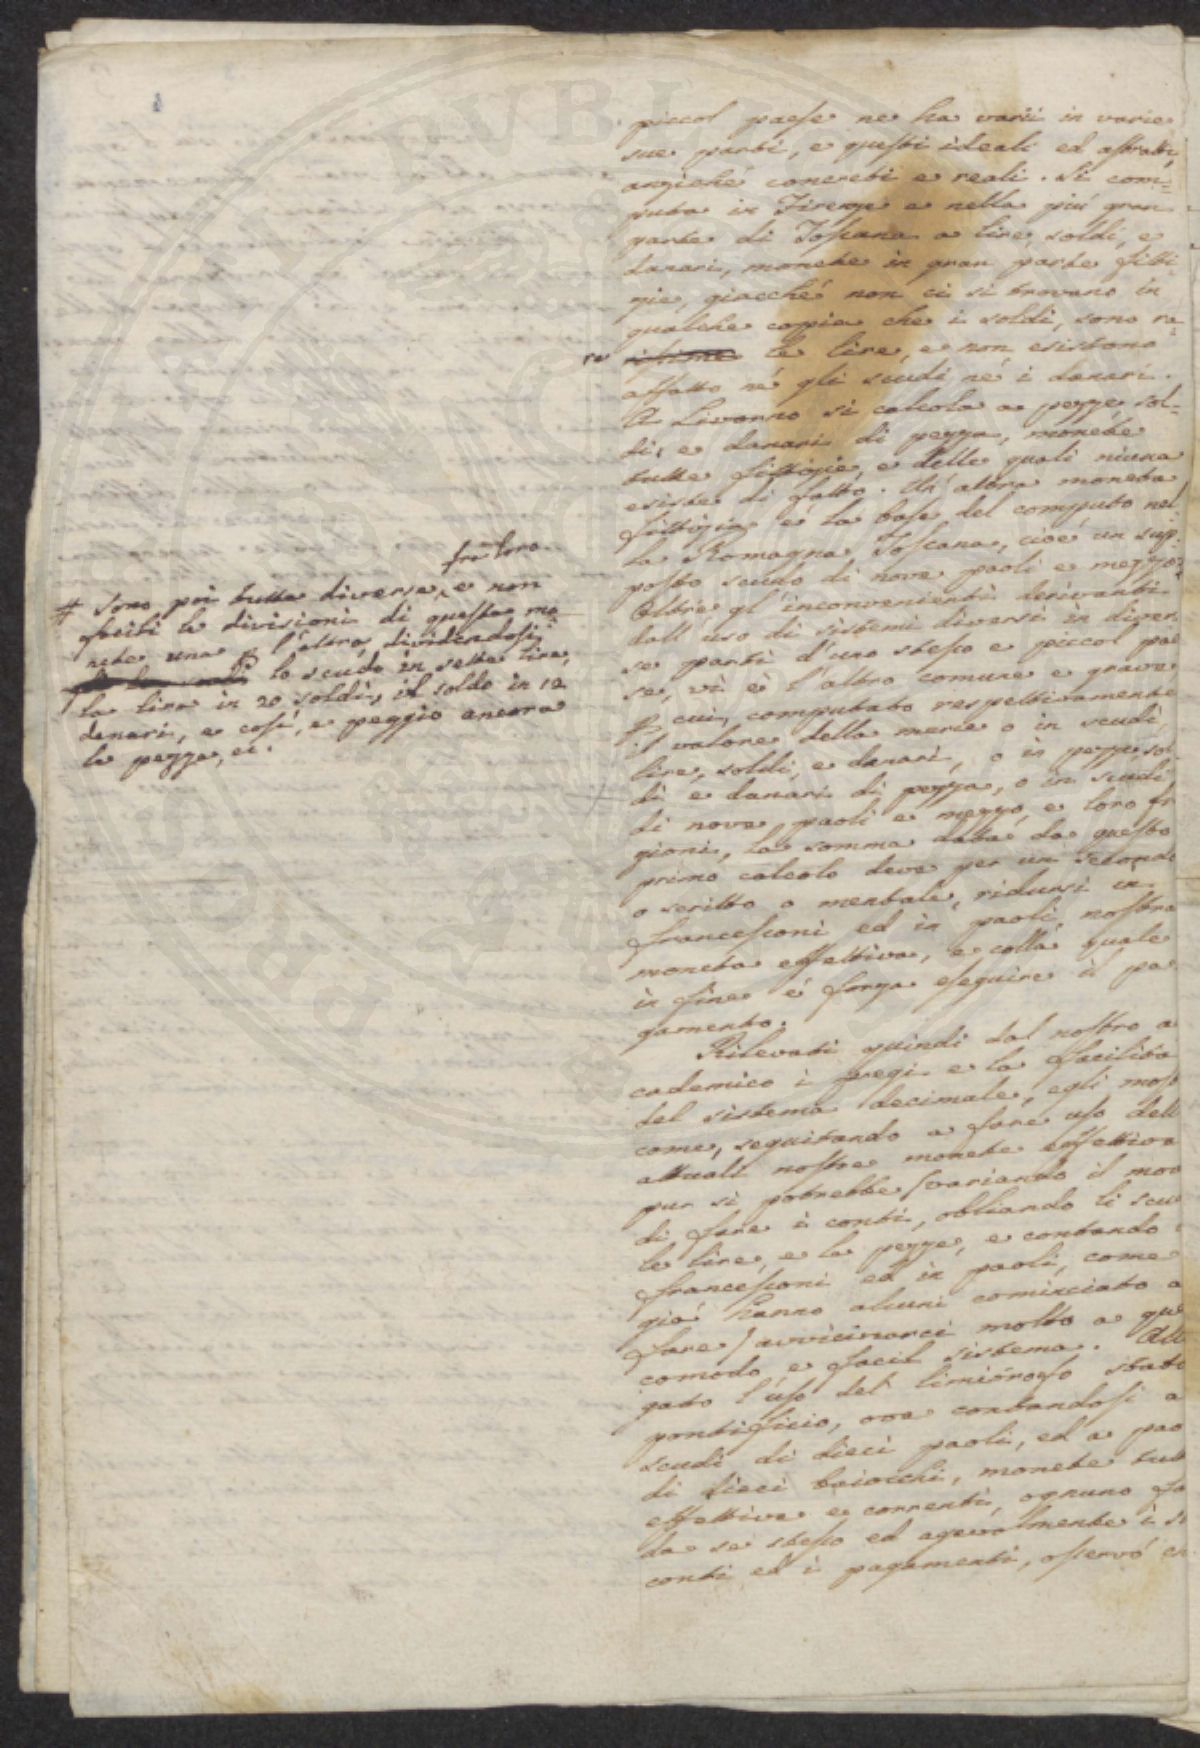 piccol paese ne ha varii in varie
sue parti, e questi ideali ed astratti,
anziché concreti e reali. Si com-
puta in Firenze e nella più gran
parte di Toscana a lire, soldi, e
danari, monete in gran parte fitti-
zie, giacché non ci si trovano in
qualche copia che i soldi, sono ra-
re le lire, e non esistono
affatto né gli scudi né i danari.
A Livorno si calcola a pezze sol-
di, e danari di pezza, monete
tutte fittizie, e delle quali niuna
esiste di fatto. Un' altra moneta
fittizia è la base del computo nel-
la Romagna Toscana, cioè un sup-
posto scudo di nove paoli e mezzo. #
Oltre gl' inconvenienti derivanti
dall' uso di sistemi diversi in diver-
se parti d'uno stesso e piccol pae-
se, vi è l'altro comune e grave
p. cui, computato respettivamente
il valore della merce o in scudi,
lire, soldi, e danari, o in pezze, sol
di e danari di pezza, o in scudi
di nove paoli e mezzo, e loro fr
zioni, la somma data da questo
primo calcolo deve per un secondo
o scritto o mentale, ridursi in
francesconi ed in paoli, nostra
moneta effettiva, e colla quale
in fine è forza eseguire il pa
gamento.
Rilevati quindi dal nostro a
cademico i pregi e la facilità
del sistema decimale, egli most
come, seguitando a fare uso dell
attuali nostre monete effettive
pur si potrebbe (variando il mod
di fare i conti, obliando li scu
le lire, e le pezze, e contando
francesconi ed in paoli, come
già hanno alcuni cominciato a
fare) avvicinarci molto a que
comodo e facil sistema. All
gato l'uso del limitrofo stato
pontificio, ove contandosi a
scudi di dieci paoli, ed a pao
di dieci baiocchi, monete tutt
effettive e correnti, ognuno fa
da se stesso ed agevolmente i s
conti ed i pagamenti, osservò
fra loro
# sono poi tutte diverse, e non
facili le divisioni di queste mo
nete una p. l'altra, dividendosi
lo scudo in sette lire,
la lira in 20 soldi, il soldo in 12
danari, e così, e peggio ancora
le pezze, ec.